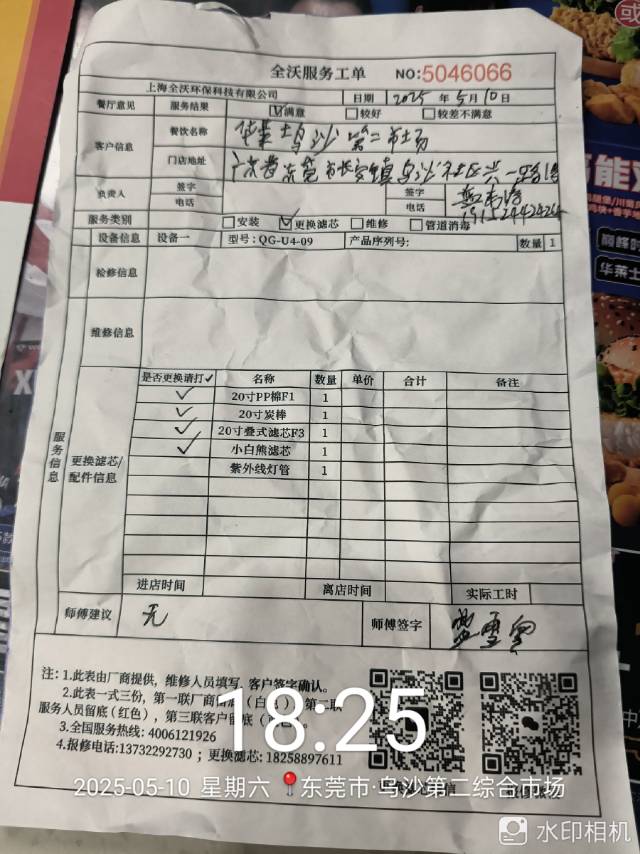 全沃服务工单
NO:5046066
上海全沃环保科技有限公司
日期 2025 年 5 月 10 日
餐厅意见 服务结果 ☑满意 □较好 □较差不满意
客户信息 餐饮名称 华莱士乌沙第二市场
门店地址 广东省东莞市长安镇乌沙社区兴一路
负责人 签字 签字
电话 电话
服务类别 □安装 ☑更换滤芯 □维修 □管道消毒
设备信息 设备一 型号: QG-U4-09 产品序列号: 数量 1
检修信息
维修信息
服务信息
更换滤芯/配件信息
是否更换请打✓ 名称 数量 单价 合计 备注
✓ 20寸PP棉F1 1
✓ 20寸炭棒 1
✓ 20寸叠式滤芯F3 1
✓ 小白熊滤芯 1
紫外线灯管 1
进店时间 离店时间 实际工时
师傅建议 无 师傅签字
注: 1.此表由厂商提供，维修人员填写，客户签字确认。
2.此表一式三份，第一联厂商 (白 第二联
服务人员留底(红色)，第三联客户留底
3.全国服务热线: 4006121926
4.报修电话:13732292730 ; 更换滤芯: 18258897611
18:25
2025-05-10 星期六 东莞市·乌沙第二综合市场
水印相机
华莱士